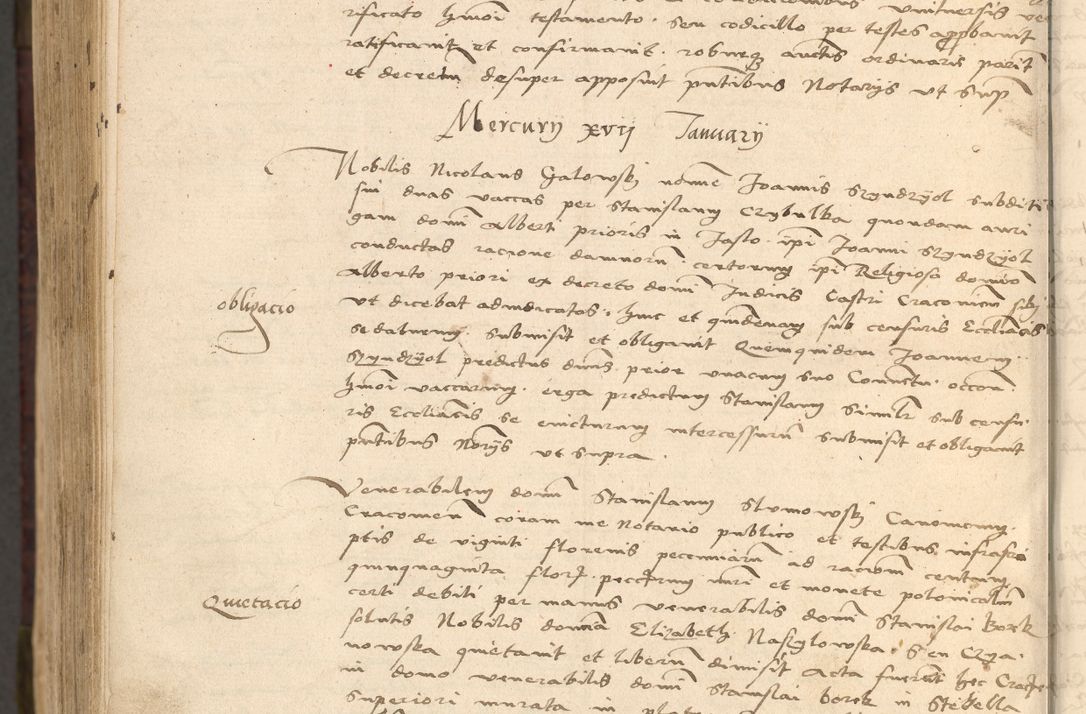 rificato hmoi testamento. seu codicillo per testes approbavit
ratificavit et confirmavit. roburq auctis ordinarie parit
et decretu desuper apposuit pntibus Notarys ut sup
Mercury xvij Januarij
Nobilis Nicolaus Galowsky nomine Joannis Szyndzyol subditi
sui duas vaccas per Stanislaum Czybulka quondam auri
gam domi Alberti prioris in Jaslo. ipi Joanni Szyndzyol
conductas racione damnoru certorum ipi Religioso domino
Alberto priori ex decreto domi Judicis Castri Cracovien sibi
obligacio
ut dicebat adiudicatos. hinc et quindenam sub censuris Eccliacis
se daturum submisit et obligavit Quemquidem Joannem
Szyndzyol predictus dnus prior unacum suo Conventu occon
hmoi vaccarum erga predictum Stanislaum Similr sub censu
ris Ecclacis se evicturum intercessuru submisit et obligavit
pntibus Notrys ut supra.
Venerabilem domi Stanislaum Slomowsky Canonicum
Cracovien coram me Notario publico et testibus infrascri
ptis de viginti florenis pecuniaru ad racionem centum
quinquaginta flor. peccarum nri et monete polonicalem
Quietacio
certi debiti per manus venerabilis domi Stanislai Borek
solutis Nobilis domina Elizabeth Naszylowska Seu Czya
nowska quietavit et liberu dimisit Acta fuerunt hec Craco
in domo venerabilis domi Stanislai Borek in Stubella
superiori murata in